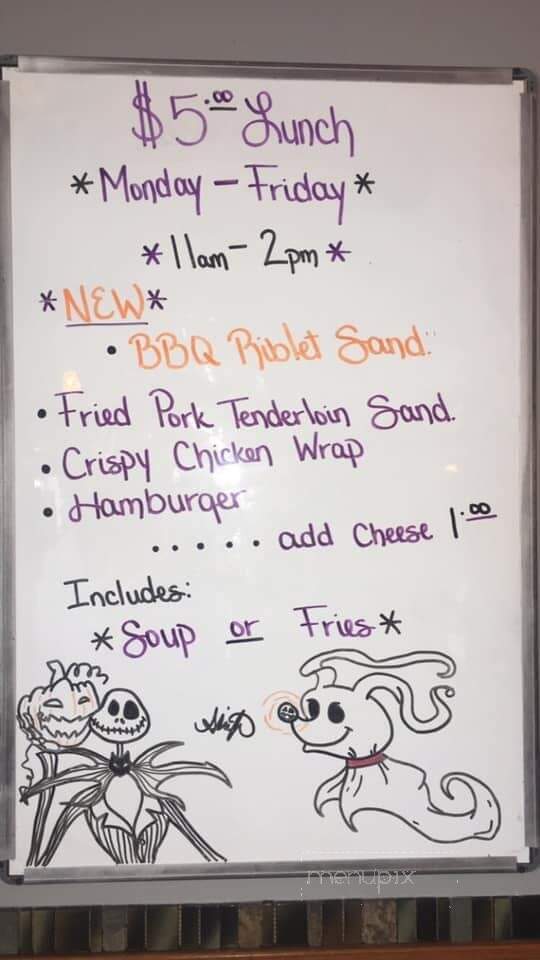 $5.00 Lunch
*Monday - Friday*
*11am - 2pm*
*NEW*
• BBQ Riblet Sand.
• Fried Pork Tenderloin Sand.
• Crispy Chicken Wrap
• Hamburger
..... add Cheese 1.00
Includes:
*Soup or Fries*
menupix